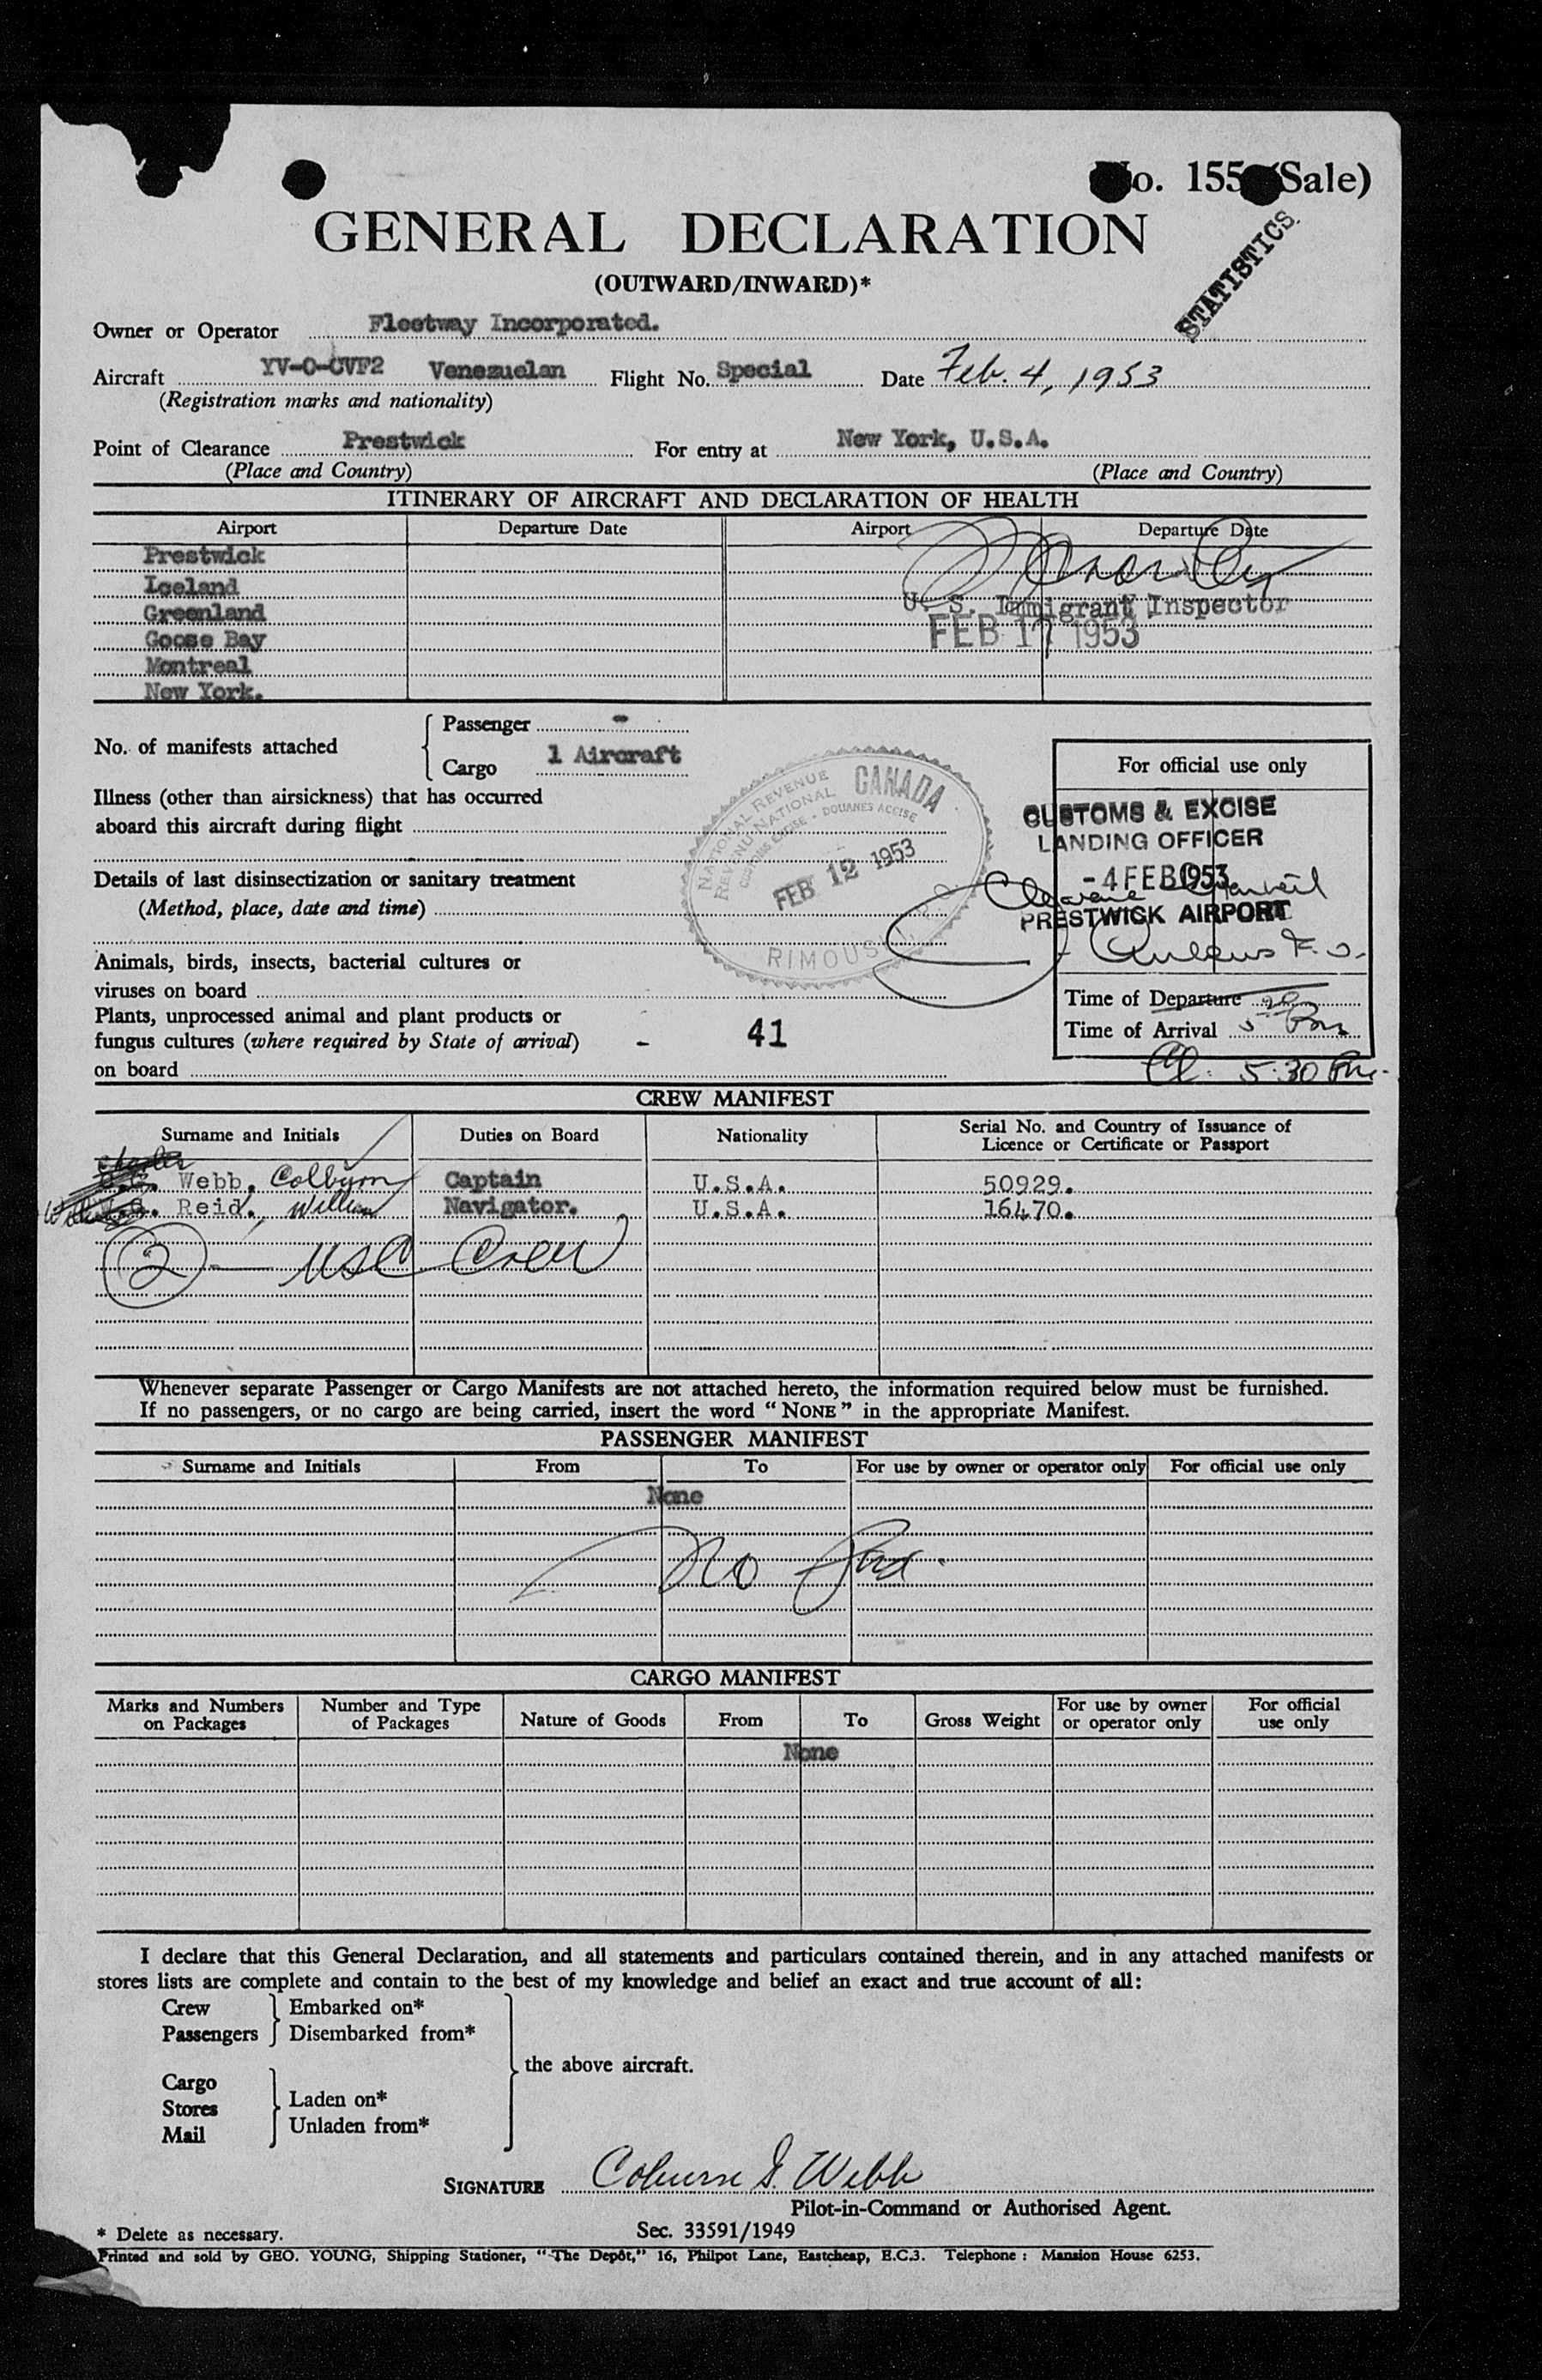 o. 155 (Sale)
GENERAL DECLARATION
(OUTWARD/INWARD)*
STATISTICS
Owner or Operator Fleetway Incorporated.
Aircraft YV-O-CVF2 Venezuelan Flight No. Special Date Feb. 4, 1953
(Registration marks and nationality)
Point of Clearance Prestwick For entry at New York, U.S.A.
(Place and Country) (Place and Country)
ITINERARY OF AIRCRAFT AND DECLARATION OF HEALTH
Airport Departure Date Airport Departure Date
Prestwick
Iceland
Greenland
Goose Bay
Montreal
New York.
U. S. Immigrant Inspector
FEB 17 1953
No. of manifests attached
Passenger -
Cargo 1 Aircraft
Illness (other than airsickness) that has occurred
aboard this aircraft during flight
Details of last disinsectization or sanitary treatment
(Method, place, date and time)
Animals, birds, insects, bacterial cultures or
viruses on board
Plants, unprocessed animal and plant products or
fungus cultures (where required by State of arrival) - 41
on board
NATIONAL REVENUE CANADA
REVENU NATIONAL
CUSTOMS EXCISE - DOUANES ACCISE
FEB 12 1953
RIMOUSKI, P.Q.
For official use only
CUSTOMS & EXCISE
LANDING OFFICER
- 4 FEB 1953
PRESTWICK AIRPORT
Time of Departure
Time of Arrival
5.30 Pm.
CREW MANIFEST
Surname and Initials Duties on Board Nationality Serial No. and Country of Issuance of
Licence or Certificate or Passport
Webb. Colbyrn Captain U.S.A. 50929.
Reid., William Navigator. U.S.A. 16470.
2 — USC Crew
Whenever separate Passenger or Cargo Manifests are not attached hereto, the information required below must be furnished.
If no passengers, or no cargo are being carried, insert the word "NONE" in the appropriate Manifest.
PASSENGER MANIFEST
Surname and Initials From To For use by owner or operator only For official use only
None
No
CARGO MANIFEST
Marks and Numbers on Packages Number and Type of Packages Nature of Goods From To Gross Weight For use by owner or operator only For official use only
None
I declare that this General Declaration, and all statements and particulars contained therein, and in any attached manifests or
stores lists are complete and contain to the best of my knowledge and belief an exact and true account of all:
Crew Embarked on*
Passengers Disembarked from*
the above aircraft.
Cargo
Stores Laden on*
Mail Unladen from*
SIGNATURE Coburn G. Webb
Pilot-in-Command or Authorised Agent.
* Delete as necessary. Sec. 33591/1949
Printed and sold by GEO. YOUNG, Shipping Stationer, "The Depôt," 16, Philpot Lane, Eastcheap, E.C.3. Telephone : Mansion House 6253.